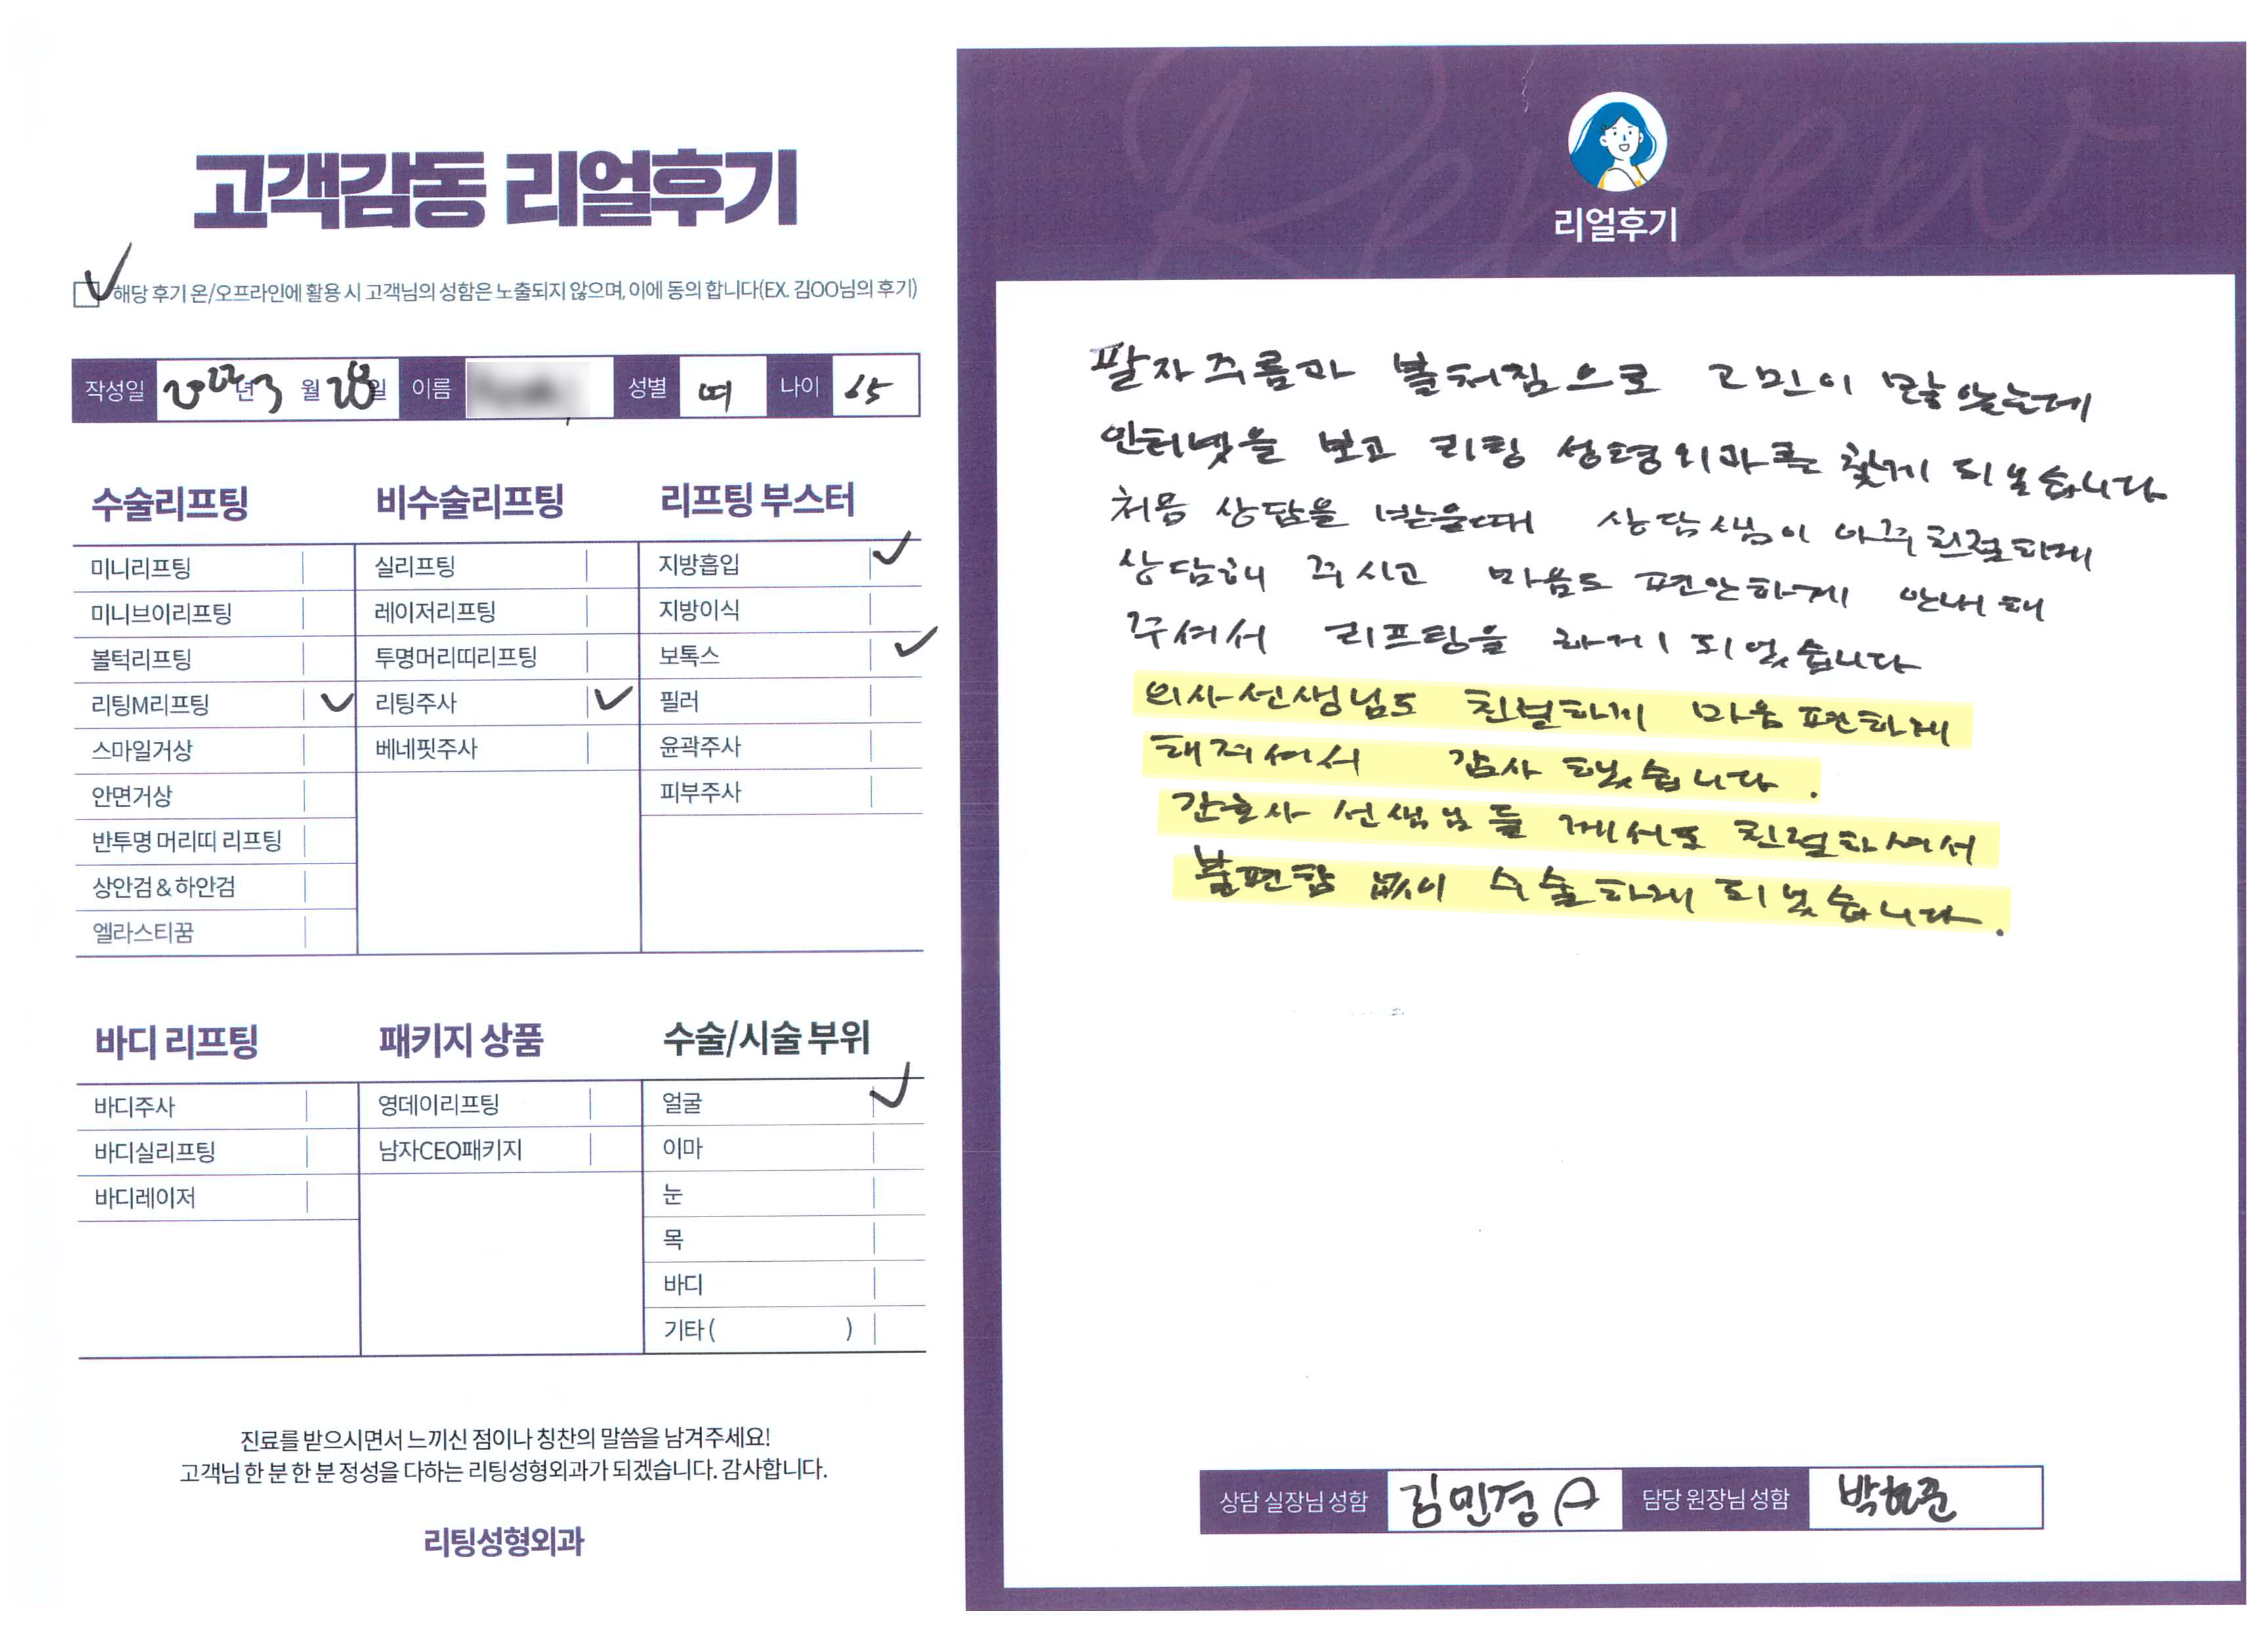 고객감동 리얼후기
해당 후기 온/오프라인에 활용 시 고객님의 성함은 노출되지 않으며, 이에 동의 합니다(EX. 김OO님의 후기)
작성일 2022년 3월 28일 이름 성별 여 나이 65
수술리프팅
미니리프팅
미니브이리프팅
볼턱리프팅
리팅M리프팅
스마일거상
안면거상
반투명 머리띠 리프팅
상안검&하안검
엘라스티꿈
비수술리프팅
실리프팅
레이저리프팅
투명머리띠리프팅
리팅주사
베네핏주사
리프팅 부스터
지방흡입
지방이식
보톡스
필러
윤곽주사
피부주사
바디 리프팅
바디주사
바디실리프팅
바디레이저
패키지 상품
영데이리프팅
남자CEO패키지
수술/시술 부위
얼굴
이마
눈
목
바디
기타 ( )
진료를 받으시면서 느끼신 점이나 칭찬의 말씀을 남겨주세요!
고객님 한 분 한 분 정성을 다하는 리팅성형외과가 되겠습니다. 감사합니다.
리팅성형외과
Review
리얼후기
팔자주름과 볼처짐으로 고민이 많았는데
인터넷을 보고 리팅 성형외과를 찾게 되었습니다
처음 상담을 받을때 상담샘이 아주친절하게
상담해 주시고 마음도 편안하게 안내해
주셔서 리프팅을 하게 되었습니다
의사선생님도 친절하게 마음편하게
해주셔서 감사 했습니다.
간호사 선생님들 께서도 친절하셔서
불편함 없이 수술하게 되었습니다.
상담 실장님 성함 김민경 담당 원장님 성함 박현준